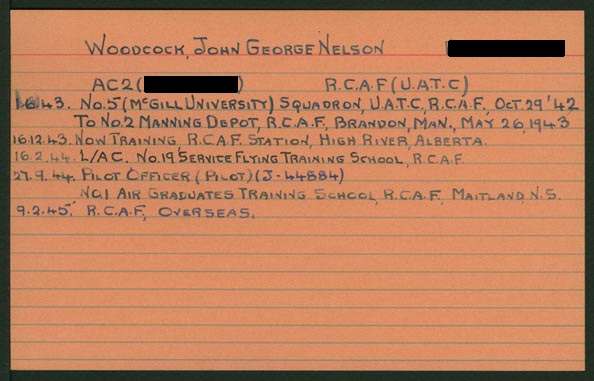 WOODCOCK, JOHN GEORGE NELSON
AC2 ( ) R.C.A.F (U.A.T.C)
1.6.43. No.5 (McGILL UNIVERSITY) SQUADRON, U.A.T.C, R.C.A.F., OCT. 29 '42
TO No.2 MANNING DEPOT, R.C.A.F., BRANDON, MAN., MAY 26, 1943
16.12.43. NOW TRAINING, R.C.A.F. STATION, HIGH RIVER, ALBERTA.
16.2.44. L/AC. No.19 SERVICE FLYING TRAINING SCHOOL, R.C.A.F.
27.9.44. PILOT OFFICER (PILOT) (J-44884)
No.1 AIR GRADUATES TRAINING SCHOOL, R.C.A.F., MAITLAND, N.S.
9.2.45. R.C.A.F., OVERSEAS.